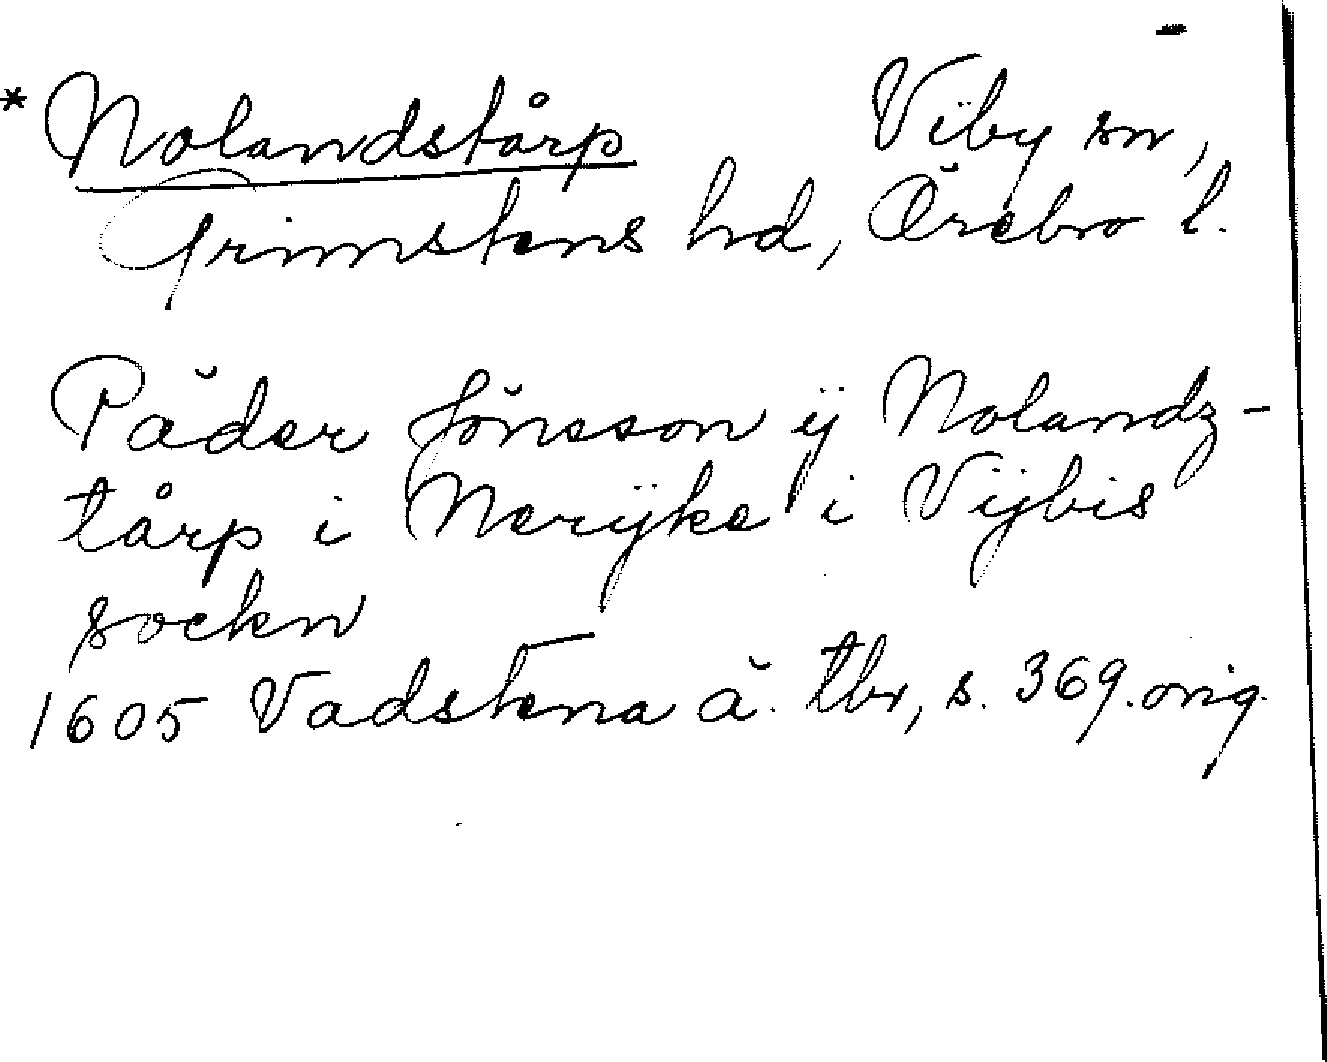 * Nolandstårp Viby sn,
Grimstens hd, Örebro l.
Päder Jönsson ÿ Nolandz-
tårp i Nerÿke i Vÿbis
sockn
1605 Vadstena ä. tbr, s. 369. orig.